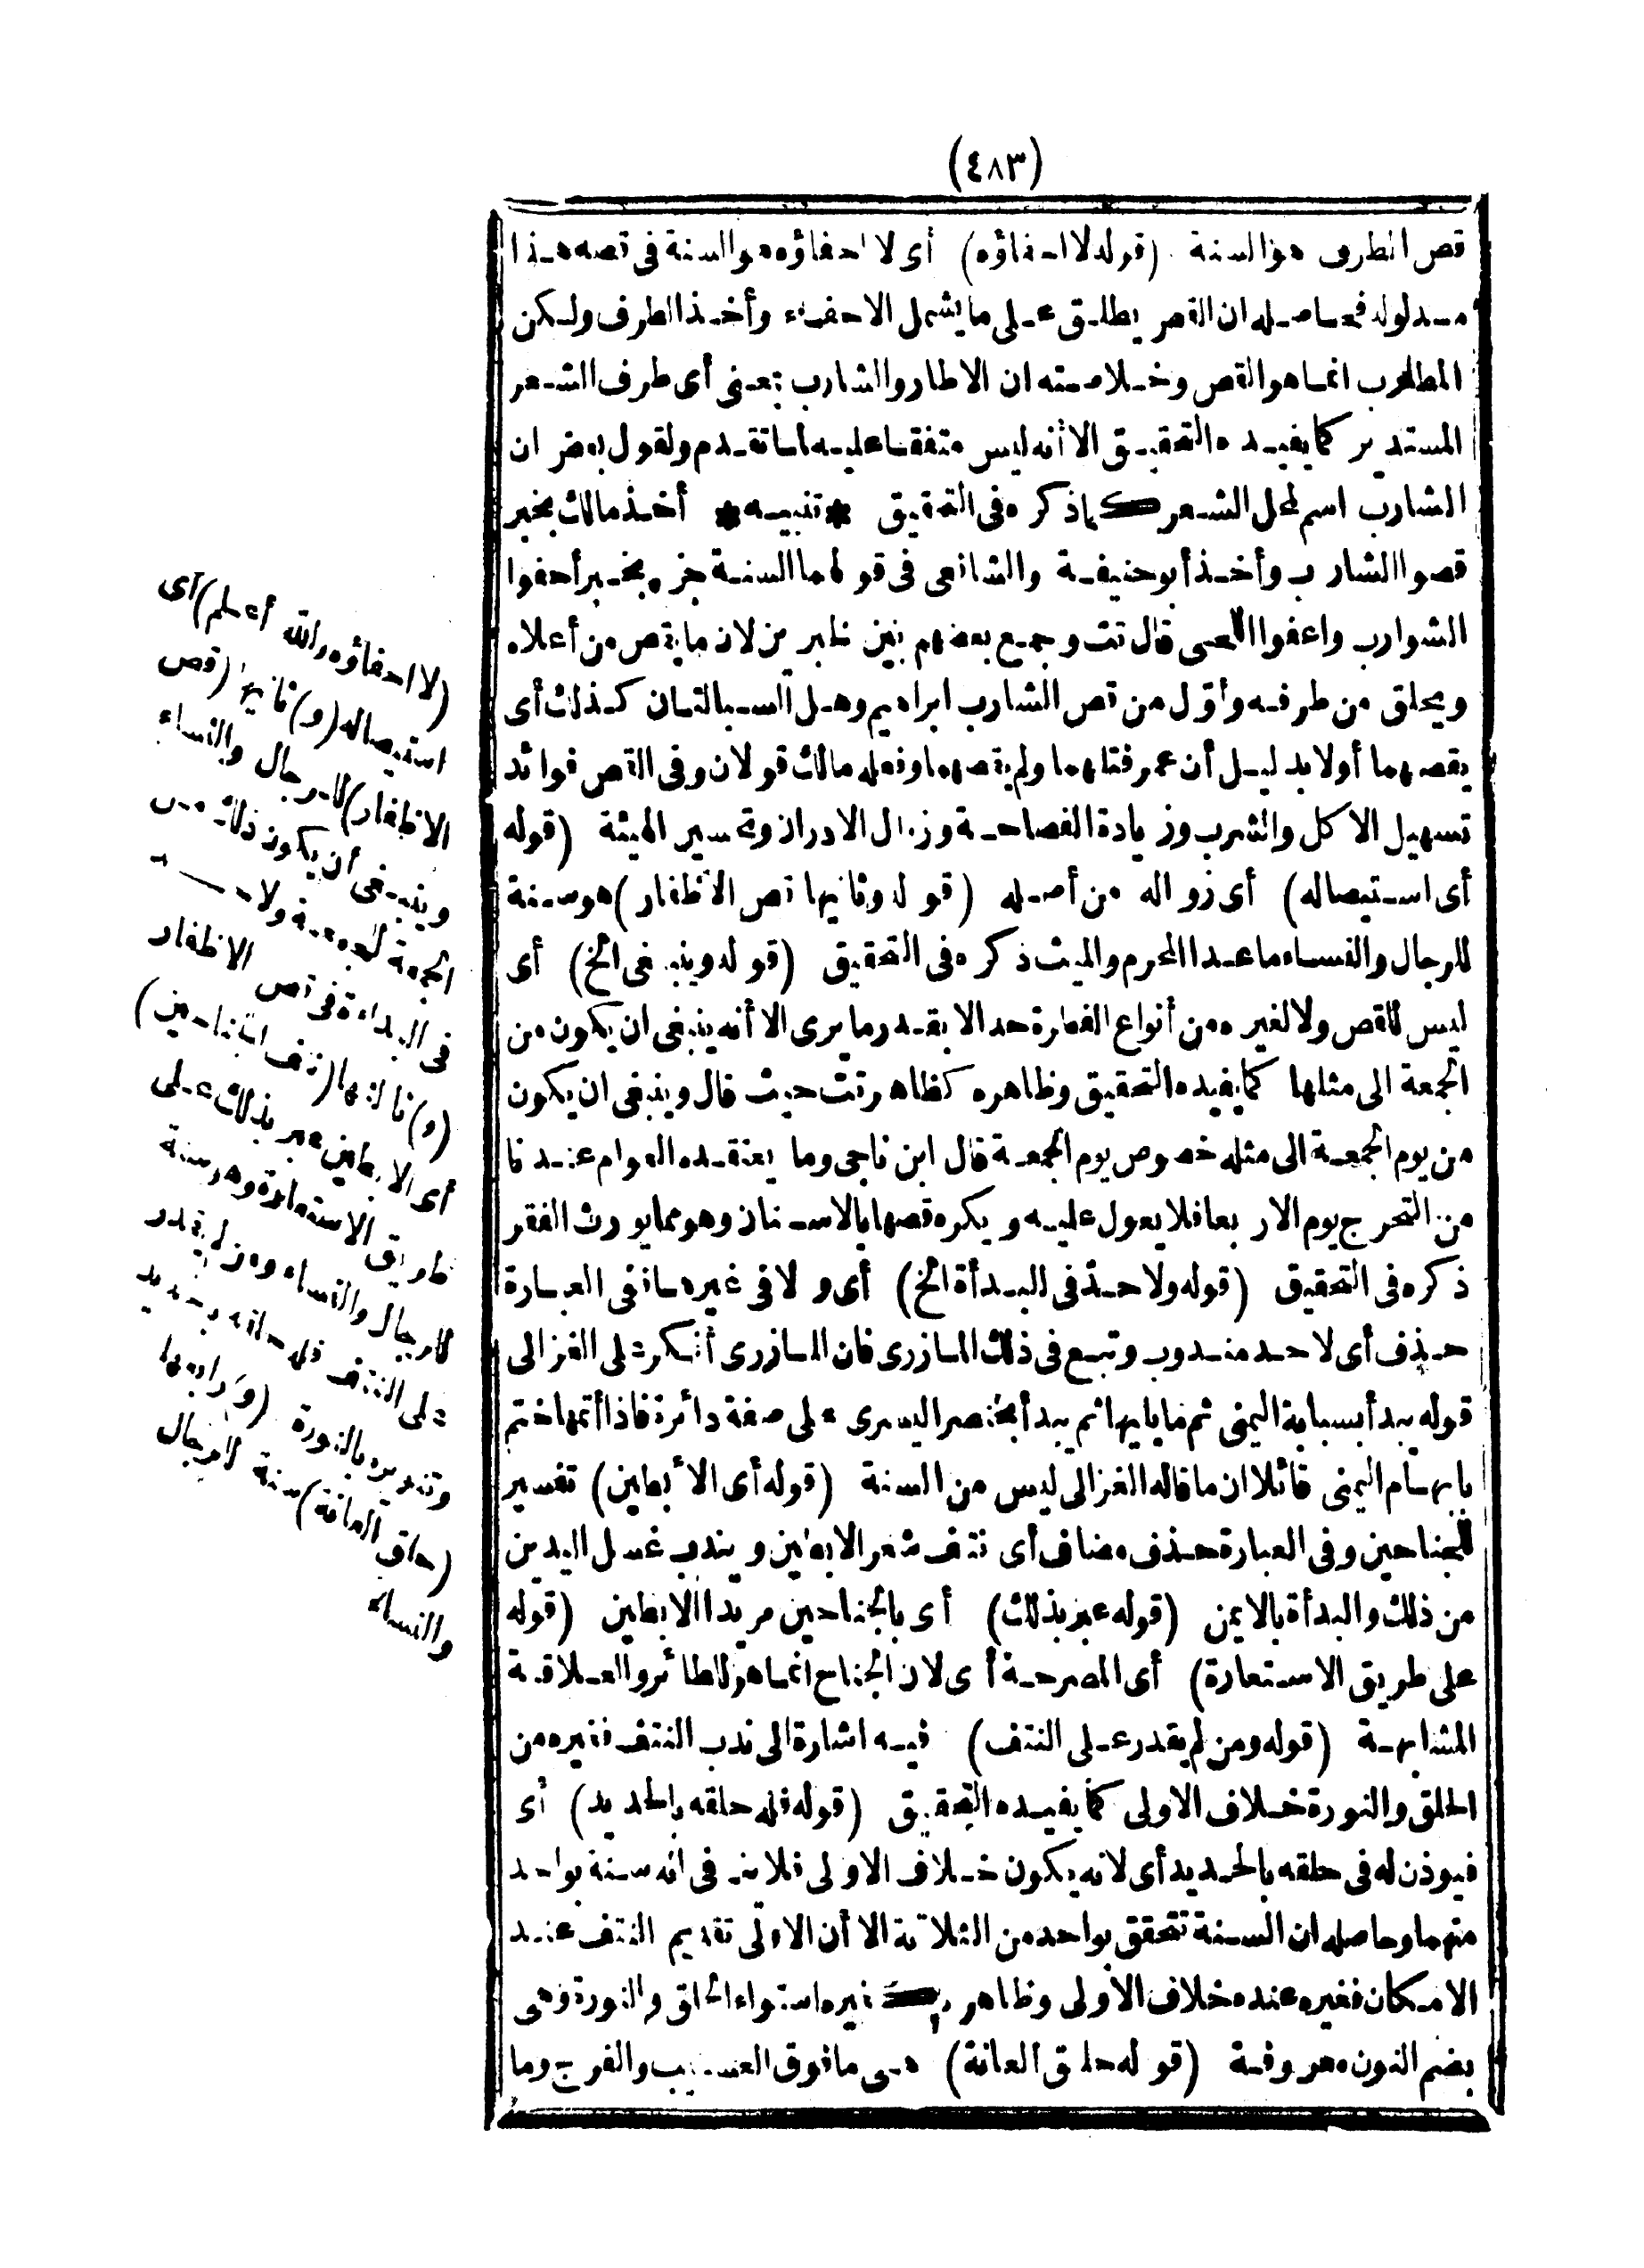 (٤٨٣)
قص الطرف هو السنة (قوله لا احفاؤه) أى لا احفاؤه هو السنة فى قصه هذا
مدلوله فحاصله ان القص يطلق على ما يشمل الاحفاء وأخذ الطرف ولكن
المطلوب انما هو القص وخلاصته ان الاطار والشارب بمعنى أى طرف الشعر
المستدير كما يفيده التحقيق الا أنه ليس متفقا عليه لما تقدم ولقول بعض ان
الشارب اسم لمحل الشعر كما ذكره فى التحقيق * تنبيه * أخذ مالك بخبر
قصوا الشارب وأخذ أبو حنيفة والشافعى فى قولهما السنة جزه بخبر أحفوا
الشوارب واعفوا اللحى قال تت وجمع بعضهم بين الخبرين لان ما يقص من أعلاه
ويحلق من طرفه وأول من قص الشارب ابراهيم وهل السبالتان كذلك أى
يقصهما أو لا بدليل أن عمر فتلهما ولم يقصهما وفعله مالك قولان وفى القص فوائد
تسهيل الاكل والشرب وزيادة الفصاحة وزوال الادران وتحسين الهيئة (قوله
أى استيصاله) أى زواله من أصله (قوله وثانيها قص الاظفار) هو سنة
للرجال والنساء ما عدا المحرم والميت ذكره فى التحقيق (قوله وينبغى الخ) أى
ليس للقص ولا لغيره من أنواع الفطرة حد الا بقدر ما يرى الا أنه ينبغى ان يكون من
الجمعة الى مثلها كما يفيده التحقيق وظاهره كظاهر تت حيث قال وينبغى ان يكون
من يوم الجمعة الى مثله خصوص يوم الجمعة قال ابن ناجى وما يعتقده العوام عندنا
من التحرج يوم الاربعا فلا يعول عليه ويكره قصها بالاسنان وهو مما يورث الفقر
ذكره فى التحقيق (قوله ولا حد فى البدأة الخ) أى ولا فى غيرها ففى العبارة
حذف أى لا حد مندوب وتبع فى ذلك المازرى فان المازرى أنكر على الغزالى
قوله يبدأ بسبابة اليمنى ثم ما يليها ثم يبدأ بخنصر اليسرى على صفة دائرة فاذا أتمها ختم
بابهام اليمنى قائلا ان ما قاله الغزالى ليس من السنة (قوله أى الأبطين) تفسير
للجناحين وفى العبارة حذف مضاف أى نتف شعر الابطين ويندب غسل اليدين
من ذلك والبدأة بالايمن (قوله عبر بذلك) أى بالجناحين مريدا الابطين (قوله
على طريق الاستعارة) أى المصرحة أى لان الجناح انما هو للطائر والعلاقة
المشابهة (قوله ومن لم يقدر على النتف) فيه اشارة الى ندب النتف فغيره من
الحلق والنورة خلاف الاولى كما يفيده التحقيق (قوله فله حلقه بالحديد) أى
فيوذن له فى حلقه بالحديد أى لانه يكون خلاف الاولى فلا ينافى انه سنة بواحد
منهما وحاصله ان السنة تتحقق بواحد من الثلاثة الا أن الاولى تقديم النتف عند
الامكان فغيره عنده خلاف الأولى وظاهر غيره استواء الحلق والنورة وهى
بضم النون معروفة (قوله حلق العانة) هى ما فوق العسيب والفرج وما
(لا احفاؤه والله أعلم) أى
استيصاله (و) ثانيها (قص
الاظفار) للرجال والنساء
وينبغى أن يكون ذلك من
الجمعة للجمعة ولا حد
فى البداءة فى قص الاظفار
(و) ثالثها (نتف الجناحين)
أى الابطين عبر بذلك على
طريق الاستعارة وهو سنة
للرجال والنساء ومن لم يقدر
على النتف فله حلقه بالحديد
وتنويره بالنورة (و) رابعها
(حلق العانة) سنة للرجال
والنساء